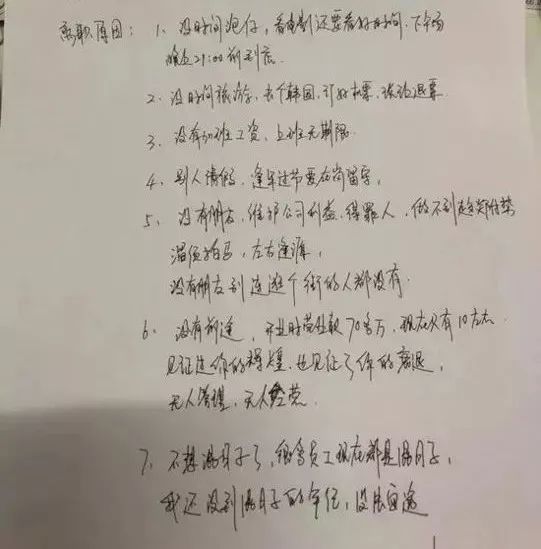 离职原因： 1、没时间泡仔，看电影还要看好时间，下午场
唯恐21:00前到店
2、没时间旅游，去个韩国，订好机票，谈论退票
3、没有加班工资，上班无期限
4、别人请假，逢年过节要在岗留守，
5、没有朋友，维护公司利益，得罪人，做不到趋炎附势
溜须拍马，左右逢源，
没有朋友到连逛个街的人都没有
6、没有前途，开业时营业额70多万，现在只有10左右
见证过你的辉煌，也见证了你的衰退，
无人管理，无人经营
7、不想混日子了，很多员工现在都是混日子，
我还没到混日子的年纪，没法交差